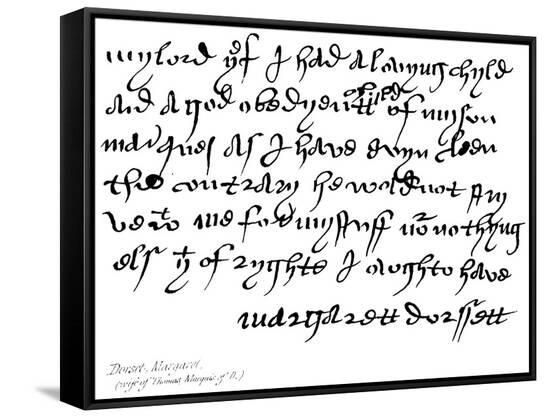 mylord yf I had a lovyng chyld
and a god obedyentt child of myson
marques as I have evyn been
the contrary he wold not stry
ve wt me for my stuff nor nothyng
els yt of ryghte I owght to have
margarett dorssett
Dorset, Margaret.
(wife of Thomas Marquis of D.)